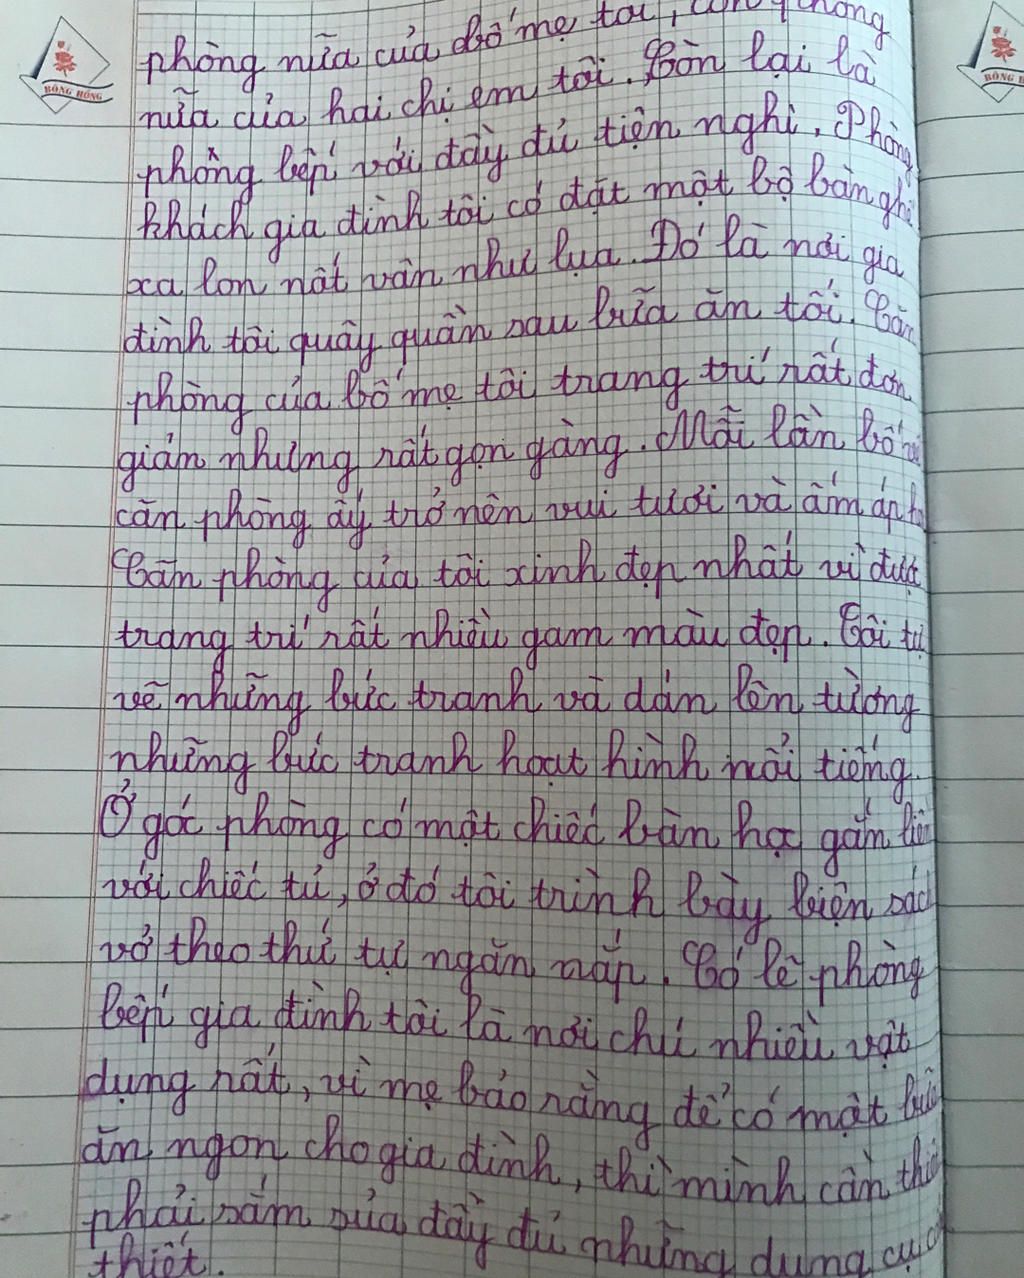 phòng nữa của bố mẹ tôi, còn phòng
nữa của hai chị em tôi. Còn lại là
phòng bếp với đầy đủ tiện nghi. Phòng
khách gia đình tôi có đặt một bộ bàn ghế
xa lon nất vân như lụa. Đó là nơi gia
đình tôi quây quần sau bữa ăn tối. Căn
phòng của bố mẹ tôi trang trí rất đơn
giản nhưng rất gọn gàng. Mỗi lần bố
căn phòng ấy trở nên vui tươi và ấm áp
Căn phòng của tôi xinh đẹp nhất vì được
trang trí rất nhiều gam màu đẹp. Tôi tự
vẽ những bức tranh và dán lên tường
những bức tranh hoạt hình nổi tiếng.
Ở góc phòng có một chiếc bàn học gắn liền
với chiếc tủ, ở đó tôi trình bày biện sách
vở theo thứ tự ngăn nắp. Có lẽ phòng
bếp gia đình tôi là nơi chứ nhiều vật
dụng nất, vì mẹ bảo rằng để có một bữa
ăn ngon cho gia đình, thì mình cần
phải sắm sửa đầy đủ những dụng cụ
thiết.
BÔNG HỒNG
BÔNG